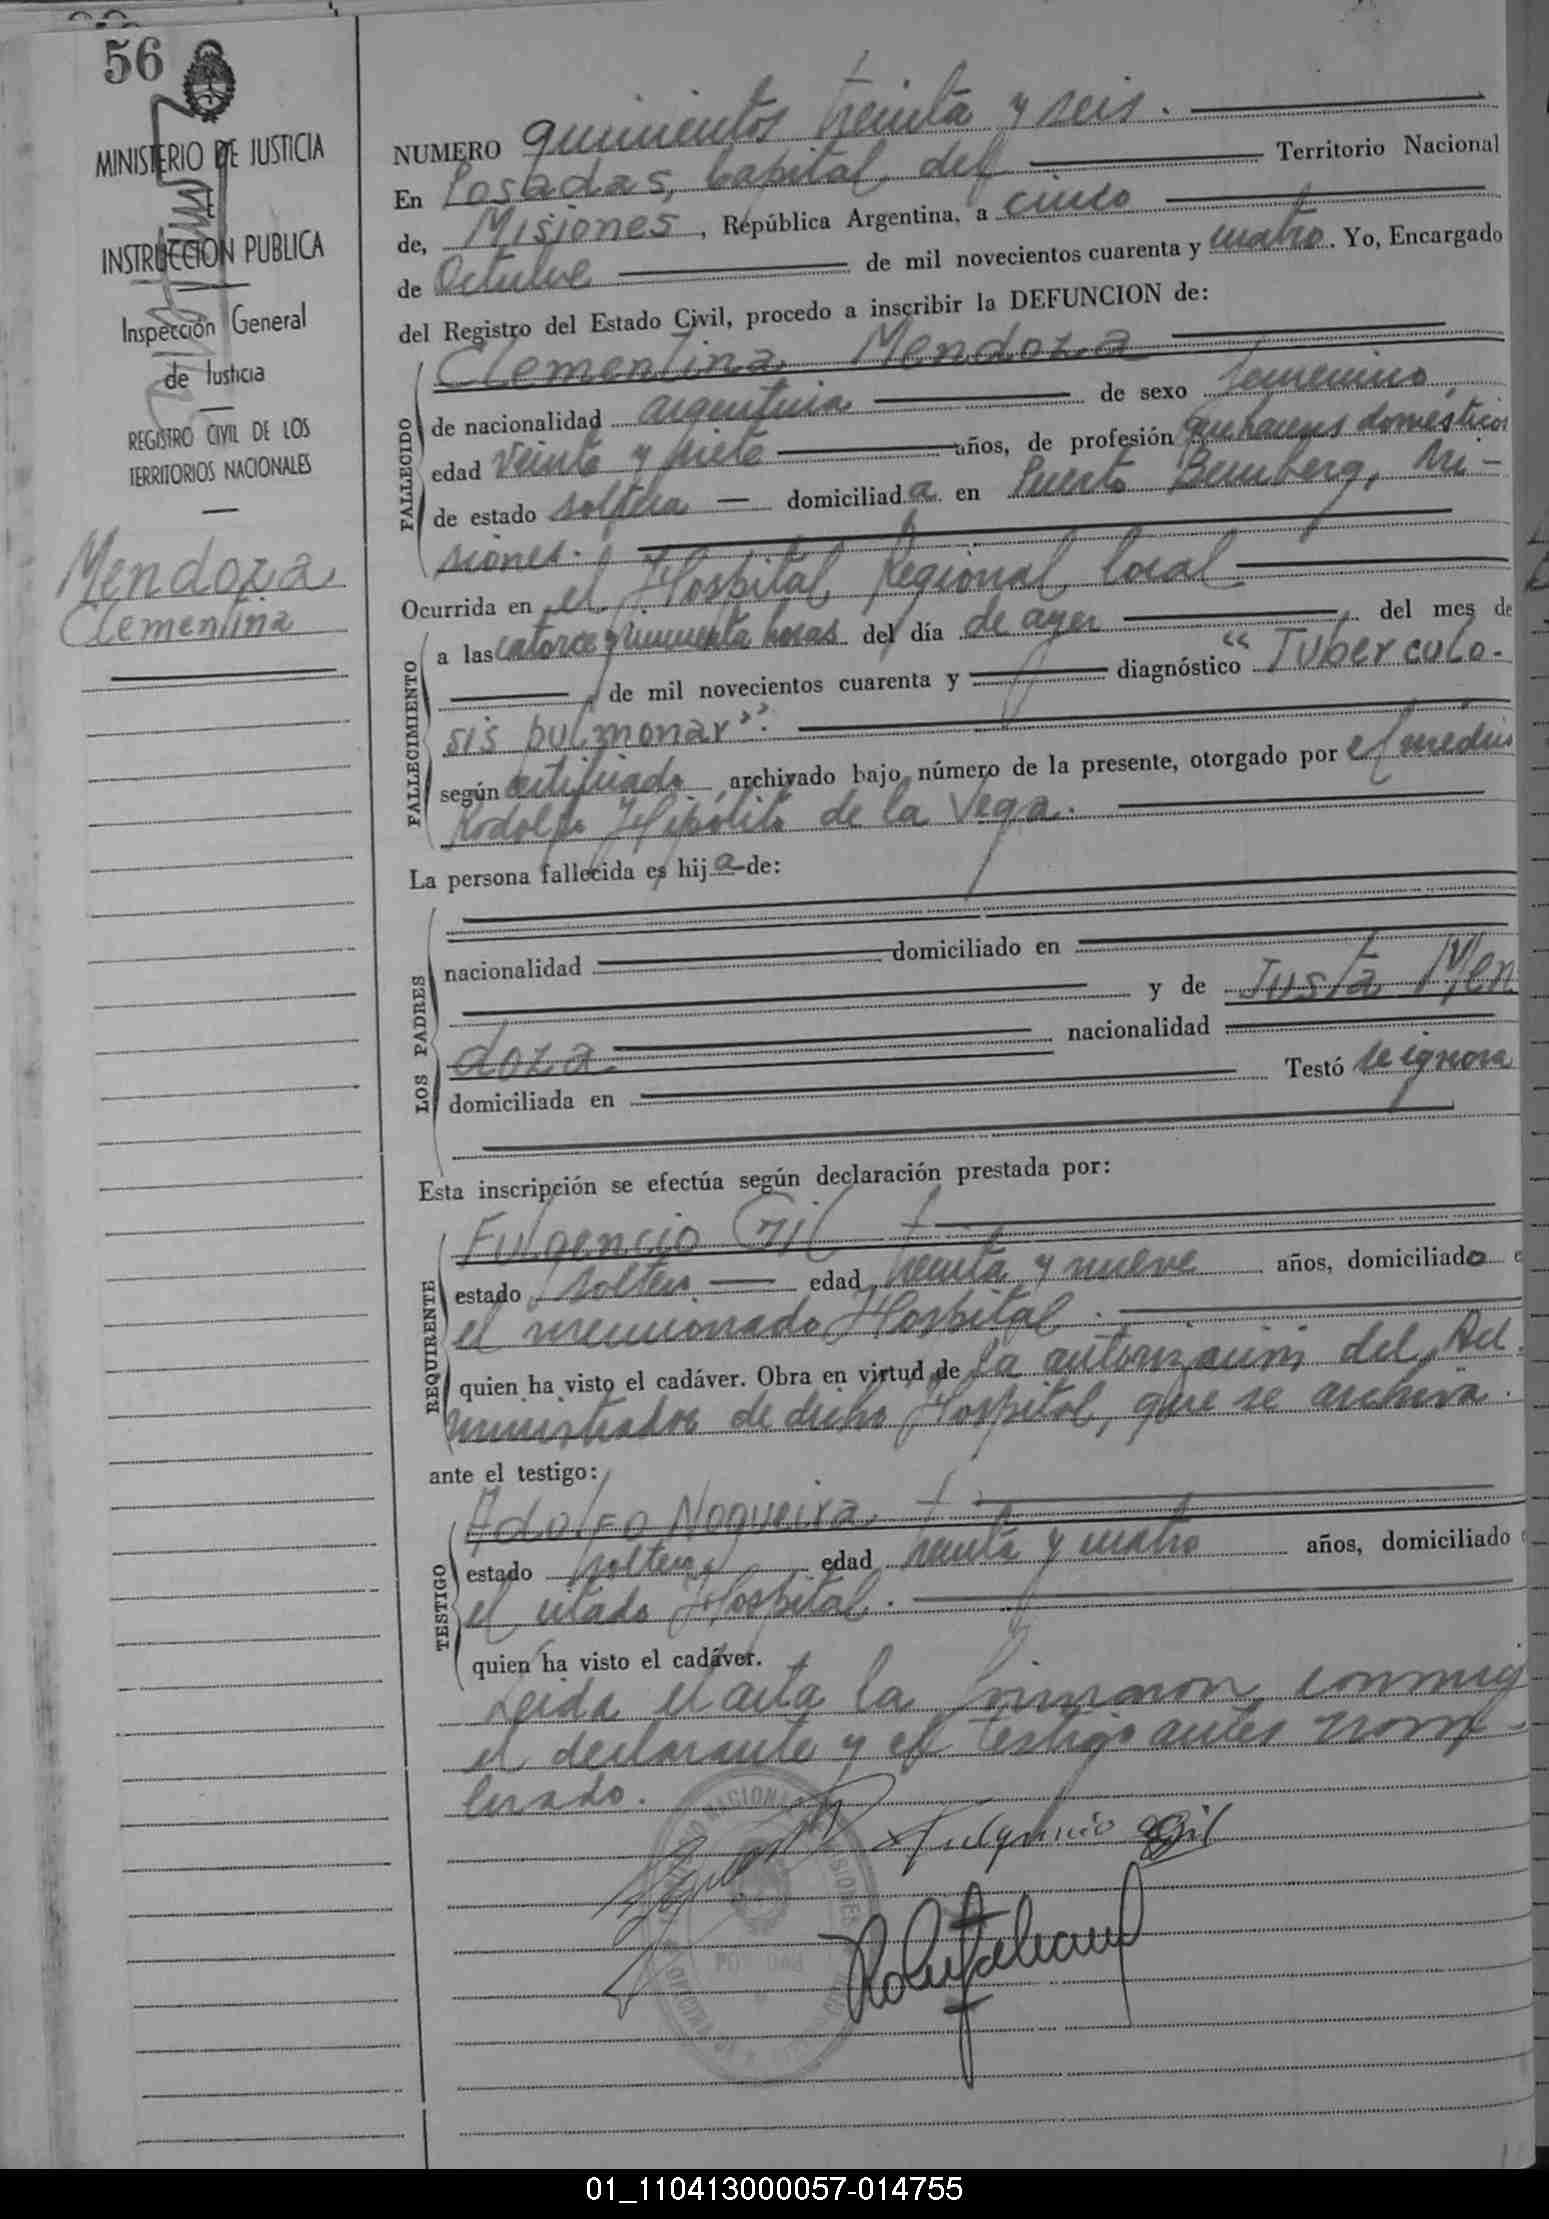 56
MINISTERIO DE JUSTICIA
E
INSTRUCCION PUBLICA
Inspección General
de Justicia
REGISTRO CIVIL DE LOS
TERRITORIOS NACIONALES
Mendoza
Clementina
NUMERO quinientos treinta y seis.
En Posadas, Capital del Territorio Nacional
de, Misiones, República Argentina, a cinco
de Octubre de mil novecientos cuarenta y cuatro. Yo, Encargado
del Registro del Estado Civil, procedo a inscribir la DEFUNCION de:
FALLECIDO
Clementina Mendoza
de nacionalidad argentina de sexo femenino
edad veinte y siete años, de profesión quehaceres domésticos
de estado soltera — domiciliada en Puerto Bemberg, Mi-
siones.
Ocurrida en el Hospital Regional local
FALLECIMIENTO
a las catorce y cincuenta horas del día de ayer del mes de
, de mil novecientos cuarenta y diagnóstico "Tuberculo-
sis pulmonar".
según certificado archivado bajo número de la presente, otorgado por el médico
Rodolfo Hipólito de la Vega.
La persona fallecida es hija de:
LOS PADRES
nacionalidad domiciliado en
y de Justa Men
doza. nacionalidad
domiciliada en Testó se ignora
Esta inscripción se efectúa según declaración prestada por:
REQUIRENTE
Fulgencio Gil
estado soltero edad treinta y nueve años, domiciliado e
el mencionado Hospital.
quien ha visto el cadáver. Obra en virtud de la autorización del Ad
ministrador de dicho Hospital, que se archiva.
ante el testigo:
TESTIGO
Adolfo Nogueira
estado soltero edad treinta y cuatro años, domiciliado
el citado Hospital.
quien ha visto el cadáver.
Leida el acta la firmaron conmig
el declarante y el testigo antes nom-
brado.
Fulgencio Gil
01_110413000057-014755